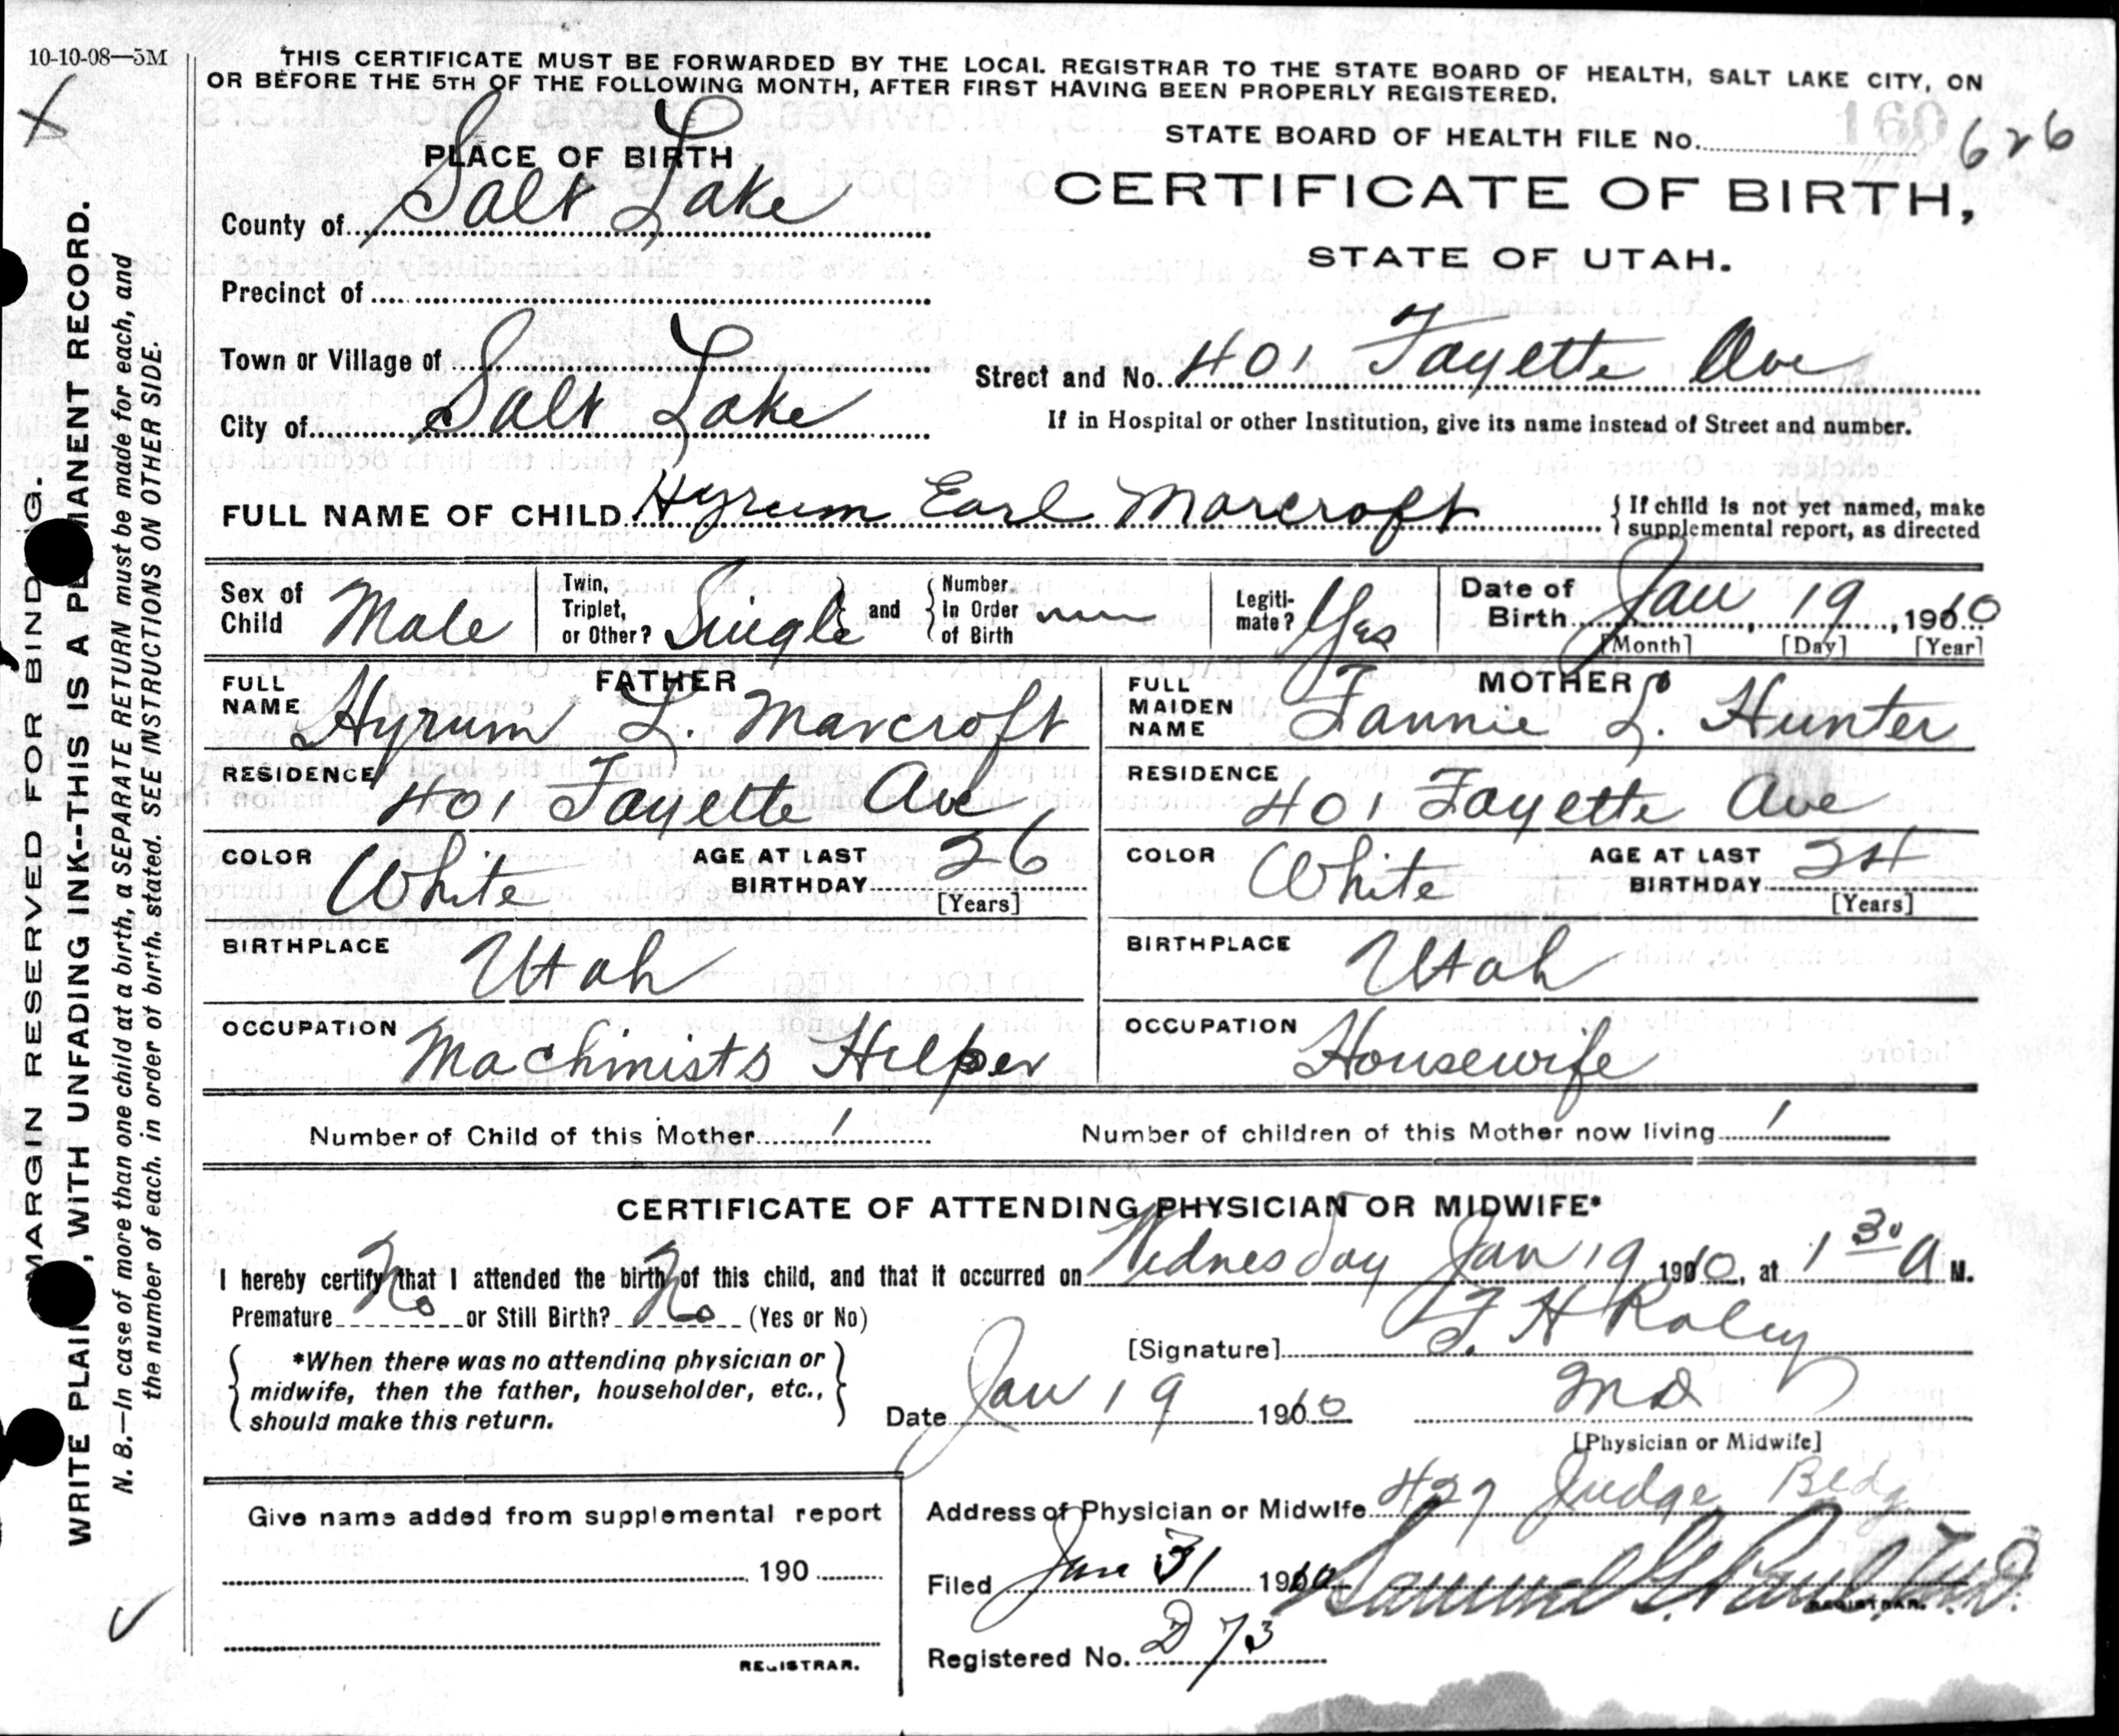 10-10-08—5M
THIS CERTIFICATE MUST BE FORWARDED BY THE LOCAL REGISTRAR TO THE STATE BOARD OF HEALTH, SALT LAKE CITY, ON
OR BEFORE THE 5TH OF THE FOLLOWING MONTH, AFTER FIRST HAVING BEEN PROPERLY REGISTERED.
STATE BOARD OF HEALTH FILE No. 160 626
PLACE OF BIRTH
CERTIFICATE OF BIRTH,
STATE OF UTAH.
County of Salt Lake
Precinct of
Town or Village of
Street and No. 401 Fayette Ave
City of Salt Lake
If in Hospital or other Institution, give its name instead of Street and number.
FULL NAME OF CHILD Hyrum Earl Marcroft
{ If child is not yet named, make
supplemental report, as directed
Sex of Child Male
Twin, Triplet, or Other? Single } and { Number. In Order of Birth
Legiti-mate? Yes
Date of Birth Jan 19, 1910
[Month] [Day] [Year]
FATHER
FULL NAME Hyrum L. Marcroft
RESIDENCE 401 Fayette Ave
COLOR White AGE AT LAST BIRTHDAY 26 [Years]
BIRTHPLACE Utah
OCCUPATION Machinists Helper
MOTHER
FULL MAIDEN NAME Fannie L. Hunter
RESIDENCE 401 Fayette Ave
COLOR White AGE AT LAST BIRTHDAY 24 [Years]
BIRTHPLACE Utah
OCCUPATION Housewife
Number of Child of this Mother 1 Number of children of this Mother now living 1
CERTIFICATE OF ATTENDING PHYSICIAN OR MIDWIFE*
I hereby certify that I attended the birth of this child, and that it occurred on Wednesday Jan 19 1910, at 1 30 A M.
Premature No or Still Birth? No (Yes or No)
*When there was no attending physician or
midwife, then the father, householder, etc.,
should make this return.
[Signature] F. H. Raley
Date Jan 19 1910 MD
[Physician or Midwife]
Give name added from supplemental report
190
REGISTRAR.
Address of Physician or Midwife 427 Judge Bldg
Filed Jan 31 1910 Samuel G. Paul, M.D.
REGISTRAR.
Registered No. D 73
MARGIN RESERVED FOR BINDING.
WRITE PLAINLY, WITH UNFADING INK--THIS IS A PERMANENT RECORD.
N. B.—In case of more than one child at a birth, a SEPARATE RETURN must be made for each, and
the number of each, in order of birth, stated. SEE INSTRUCTIONS ON OTHER SIDE.